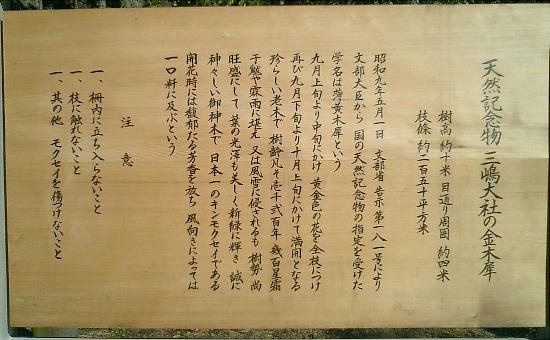 天然記念物 三嶋大社の金木犀
樹高 約十米 目通り周囲 約四米
枝條 約二百五十平方米
昭和九年五月一日 文部省告示第一八一号により
文部大臣から 国の天然記念物の指定を受けた
学名は薄黄木犀という
九月上旬より中旬にかけ 黄金色の花を全枝につけ
再び九月下旬より十月上旬にかけて満開となる
珍らしい老木で 樹齢凡そ壱千弐百年 幾百星霜
干魃や霖雨に堪え 又は風雪に侵されるも 樹勢 尚
旺盛にして 葉の光澤も美しく新緑に輝き 誠に
神々しい御神木で 日本一のキンモクセイである
開花時には馥郁たる芳香を放ち 風向きによっては
一〇粁に及ぶという
注 意
一、柵内に立ち入らないこと
一、枝に触れないこと
一、其の他 モクセイを傷つけないこと